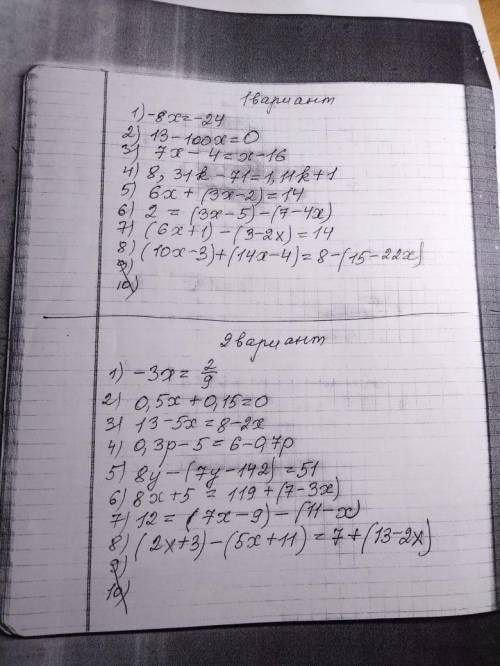 1 вариант
1) -8x=-24
2) 13-100x=0
3) 7x-4=x-16
4) 8,31k-71=1,11k+1
5) 6x+(3x-2)=14
6) 2=(3x-5)-(7-4x)
7) (6x+1)-(3-2x)=14
8) (10x-3)+(14x-4)=8-(15-22x)
9)
10)
2 вариант
1) -3x=2/9
2) 0,5x+0,15=0
3) 13-5x=8-2x
4) 0,3p-5=6-0,7p
5) 8y-(7y-142)=51
6) 8x+5=119+(7-3x)
7) 12=(7x-9)-(11-x)
8) (2x+3)-(5x+11)=7+(13-2x)
9)
10)